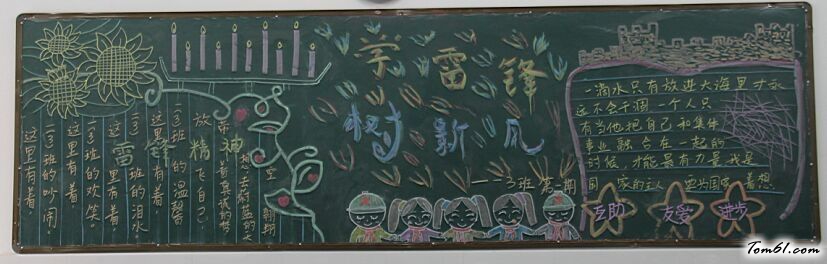 学雷锋
树新风
一3班 第一期
雷锋精神
这里有着，
二(3)班的吵闹。
这里有着，
二(3)班的欢笑。
这里有着，
二(3)班的泪水。
这里有着，
二(3)班的温馨
放飞自己，
一滴水只有放进大海里才永
远不会干涸一个人只
有当他把自己和集体
事业融合在一起的
时候，才能最有力量我是
国家的主人
着想
互助
友爱
进步
Tom61.com